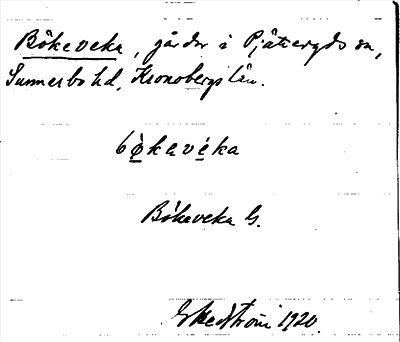 Bökeveka, gårdar i Pjätteryds sn,
Sunnerbo hd, Kronobergs län.
bökavéka
Bökeveka G.
Ekedström 1920.